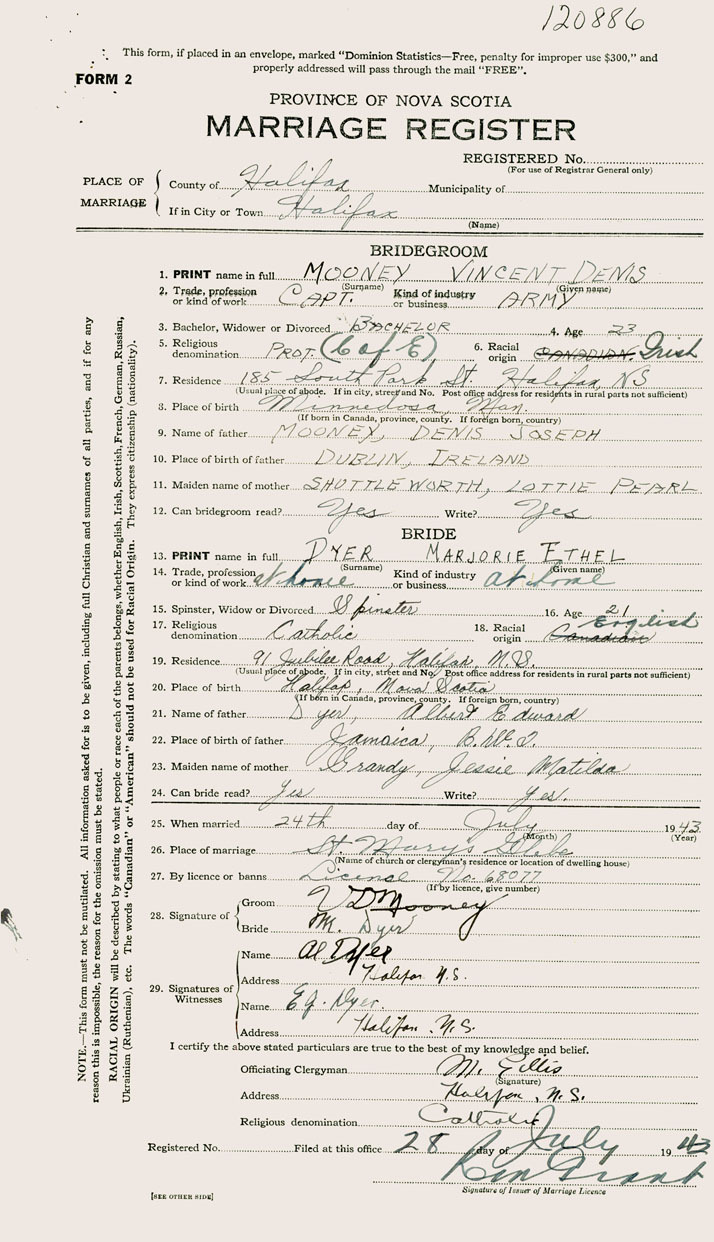 120886
This form, if placed in an envelope, marked "Dominion Statistics—Free, penalty for improper use $300," and
properly addressed will pass through the mail "FREE".
FORM 2
PROVINCE OF NOVA SCOTIA
MARRIAGE REGISTER
REGISTERED No.
(For use of Registrar General only)
PLACE OF MARRIAGE
County of Halifax Municipality of
If in City or Town Halifax
(Name)
BRIDEGROOM
1. PRINT name in full MOONEY VINCENT DENIS
(Surname) (Given name)
2. Trade, profession or kind of work CAPT. Kind of industry or business ARMY
3. Bachelor, Widower or Divorced BACHELOR 4. Age 23
5. Religious denomination PROT. (C of E) 6. Racial origin CANADIAN. Irish
7. Residence 185 South Park St. Halifax, NS
(Usual place of abode. If in city, street and No. Post office address for residents in rural parts not sufficient)
8. Place of birth Minnedosa, Man.
(If born in Canada, province, county. If foreign born, country)
9. Name of father MOONEY, DENIS JOSEPH
10. Place of birth of father DUBLIN, IRELAND
11. Maiden name of mother SHUTTLEWORTH, LOTTIE PEARL
12. Can bridegroom read? Yes Write? Yes
BRIDE
13. PRINT name in full DYER MARJORIE ETHEL
(Surname) (Given name)
14. Trade, profession or kind of work at home Kind of industry or business at home
15. Spinster, Widow or Divorced Spinster 16. Age 21
17. Religious denomination Catholic 18. Racial origin Canadian English
19. Residence 91 Jubilee Road, Halifax, N.S.
(Usual place of abode. If in city, street and No. Post office address for residents in rural parts not sufficient)
20. Place of birth Halifax, Nova Scotia
(If born in Canada, province, county. If foreign born, country)
21. Name of father Dyer, Albert Edward
22. Place of birth of father Jamaica, B.W.I.
23. Maiden name of mother Grandy, Jessie Matilda
24. Can bride read? Yes Write? Yes.
25. When married 24th day of July 1943
(Month) (Year)
26. Place of marriage St Mary's Glebe
(Name of church or clergyman's residence or location of dwelling house)
27. By licence or banns License No. 68077
(If by licence, give number)
28. Signature of
Groom V D Mooney
Bride M. Dyer
29. Signatures of Witnesses
Name Al Dyer
Address Halifax N.S.
Name E.J. Dyer.
Address Halifax. N.S.
I certify the above stated particulars are true to the best of my knowledge and belief.
Officiating Clergyman M. Gillis
(Signature)
Address Halifax, N.S.
Religious denomination Catholic
Registered No. Filed at this office 28 day of July 1943
Ken Grant
Signature of Issuer of Marriage Licence
[SEE OTHER SIDE]
NOTE.—This form must not be mutilated. All information asked for is to be given, including full Christian and surnames of all parties, and if for any
reason this is impossible, the reason for the omission must be stated.
RACIAL ORIGIN will be described by stating to what people or race each of the parents belongs, whether English, Irish, Scottish, French, German, Russian,
Ukrainian (Ruthenian), etc. The words "Canadian" or "American" should not be used for Racial Origin. They express citizenship (nationality).